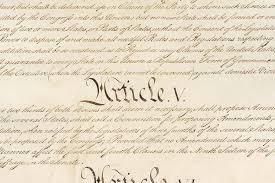 shall be delivered up on Claim of the Party to whom such Service
by the Congress into this Union; but no new State shall be formed or
of two or more States, or Parts of States, without the Consent of the Legislatures
dispose of and make all needful Rules and Regulations respecting
Claims of the United States
guarantee to every State in this Union a Republican Form of
of the Executive (when the Legislature cannot be convened) against domestic
Article. V.
two thirds of both Houses shall deem it necessary, shall propose
the several States, shall call a Convention for proposing Amendments,
when ratified by the Legislatures of three fourths of the several States
by the Congress; Provided that no Amendment which may
manner affect the first and fourth Clauses in the Ninth Section of the
Suffrage in the Senate.
Article. VI